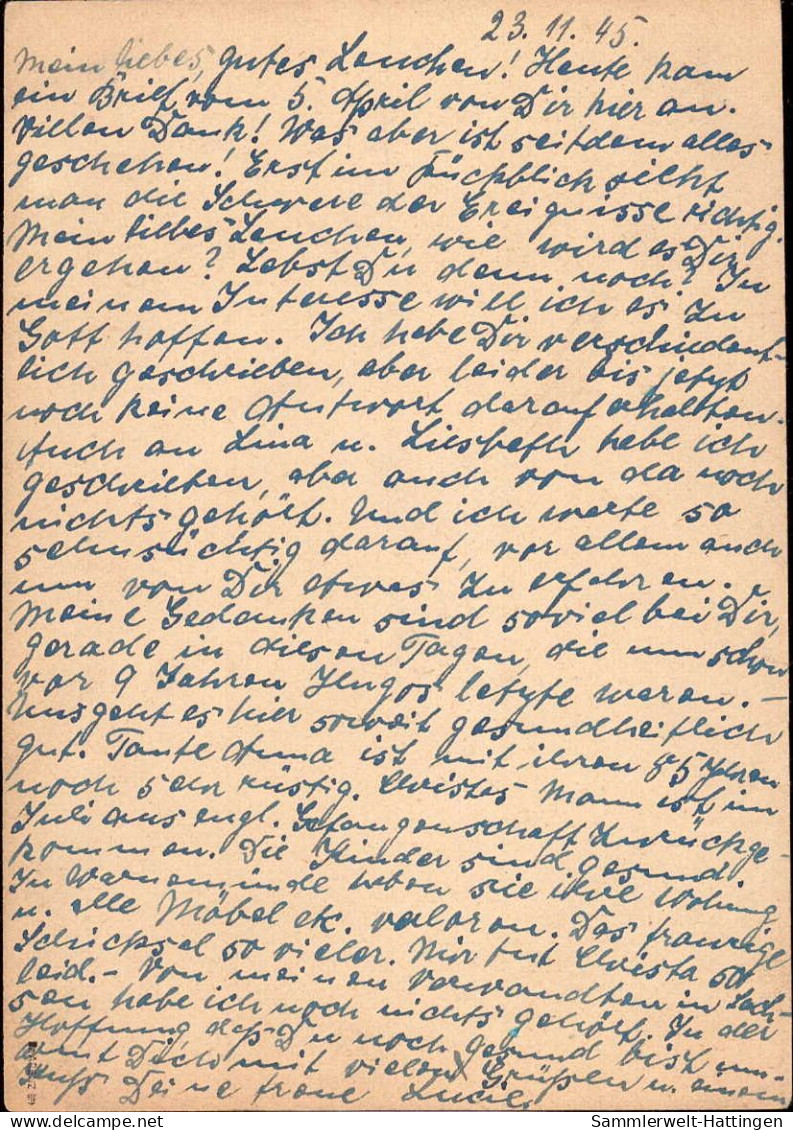 23. 11. 45.
Mein liebes, gutes Lenchen! Heute kam
ein Brief vom 5. April von Dir hier an.
Vielen Dank! Was aber ist seitdem alles
geschehen! Erst im Rückblick sieht
man die Schwere der Ereignisse richtig.
Mein liebes Lenchen, wie wird es Dir
ergehen? Lebst Du denn noch? In
meinem Interesse will ich es zu
Gott hoffen. Ich habe Dir verschiedent-
lich geschrieben, aber leider bis jetzt
noch keine Antwort darauf erhalten.
Auch an Lina u. Liesbeth habe ich
geschrieben, aber auch von da noch
nichts gehört. Und ich warte so
sehnsüchtig darauf, vor allem auch
um von Dir etwas zu erfahren.
Meine Gedanken sind soviel bei Dir,
gerade in diesen Tagen, die nun schon
vor 9 Jahren Hugos letzte waren. -
Uns geht es hier soweit gesundheitlich
gut. Tante Anna ist mit ihren 85 Jahren
noch sehr rüstig. Christas Mann ist im
Juli aus engl. Gefangenschaft zurückge-
kommen. Die Kinder sind gesund.
In Warnemünde haben sie ihre Wohnung
u. alle Möbel etc. verloren. Das traurige
Schicksal so vieler. Mir tut Christa so
leid. - Von meinen Verwandten in Sach-
sen habe ich noch nichts gehört. In der
Hoffnung, daß Du noch gesund bist um-
armt Dich mit vielen Grüßen u. einem
Kuß Deine treue Lucie.
Sammlerwelt-Hattingen